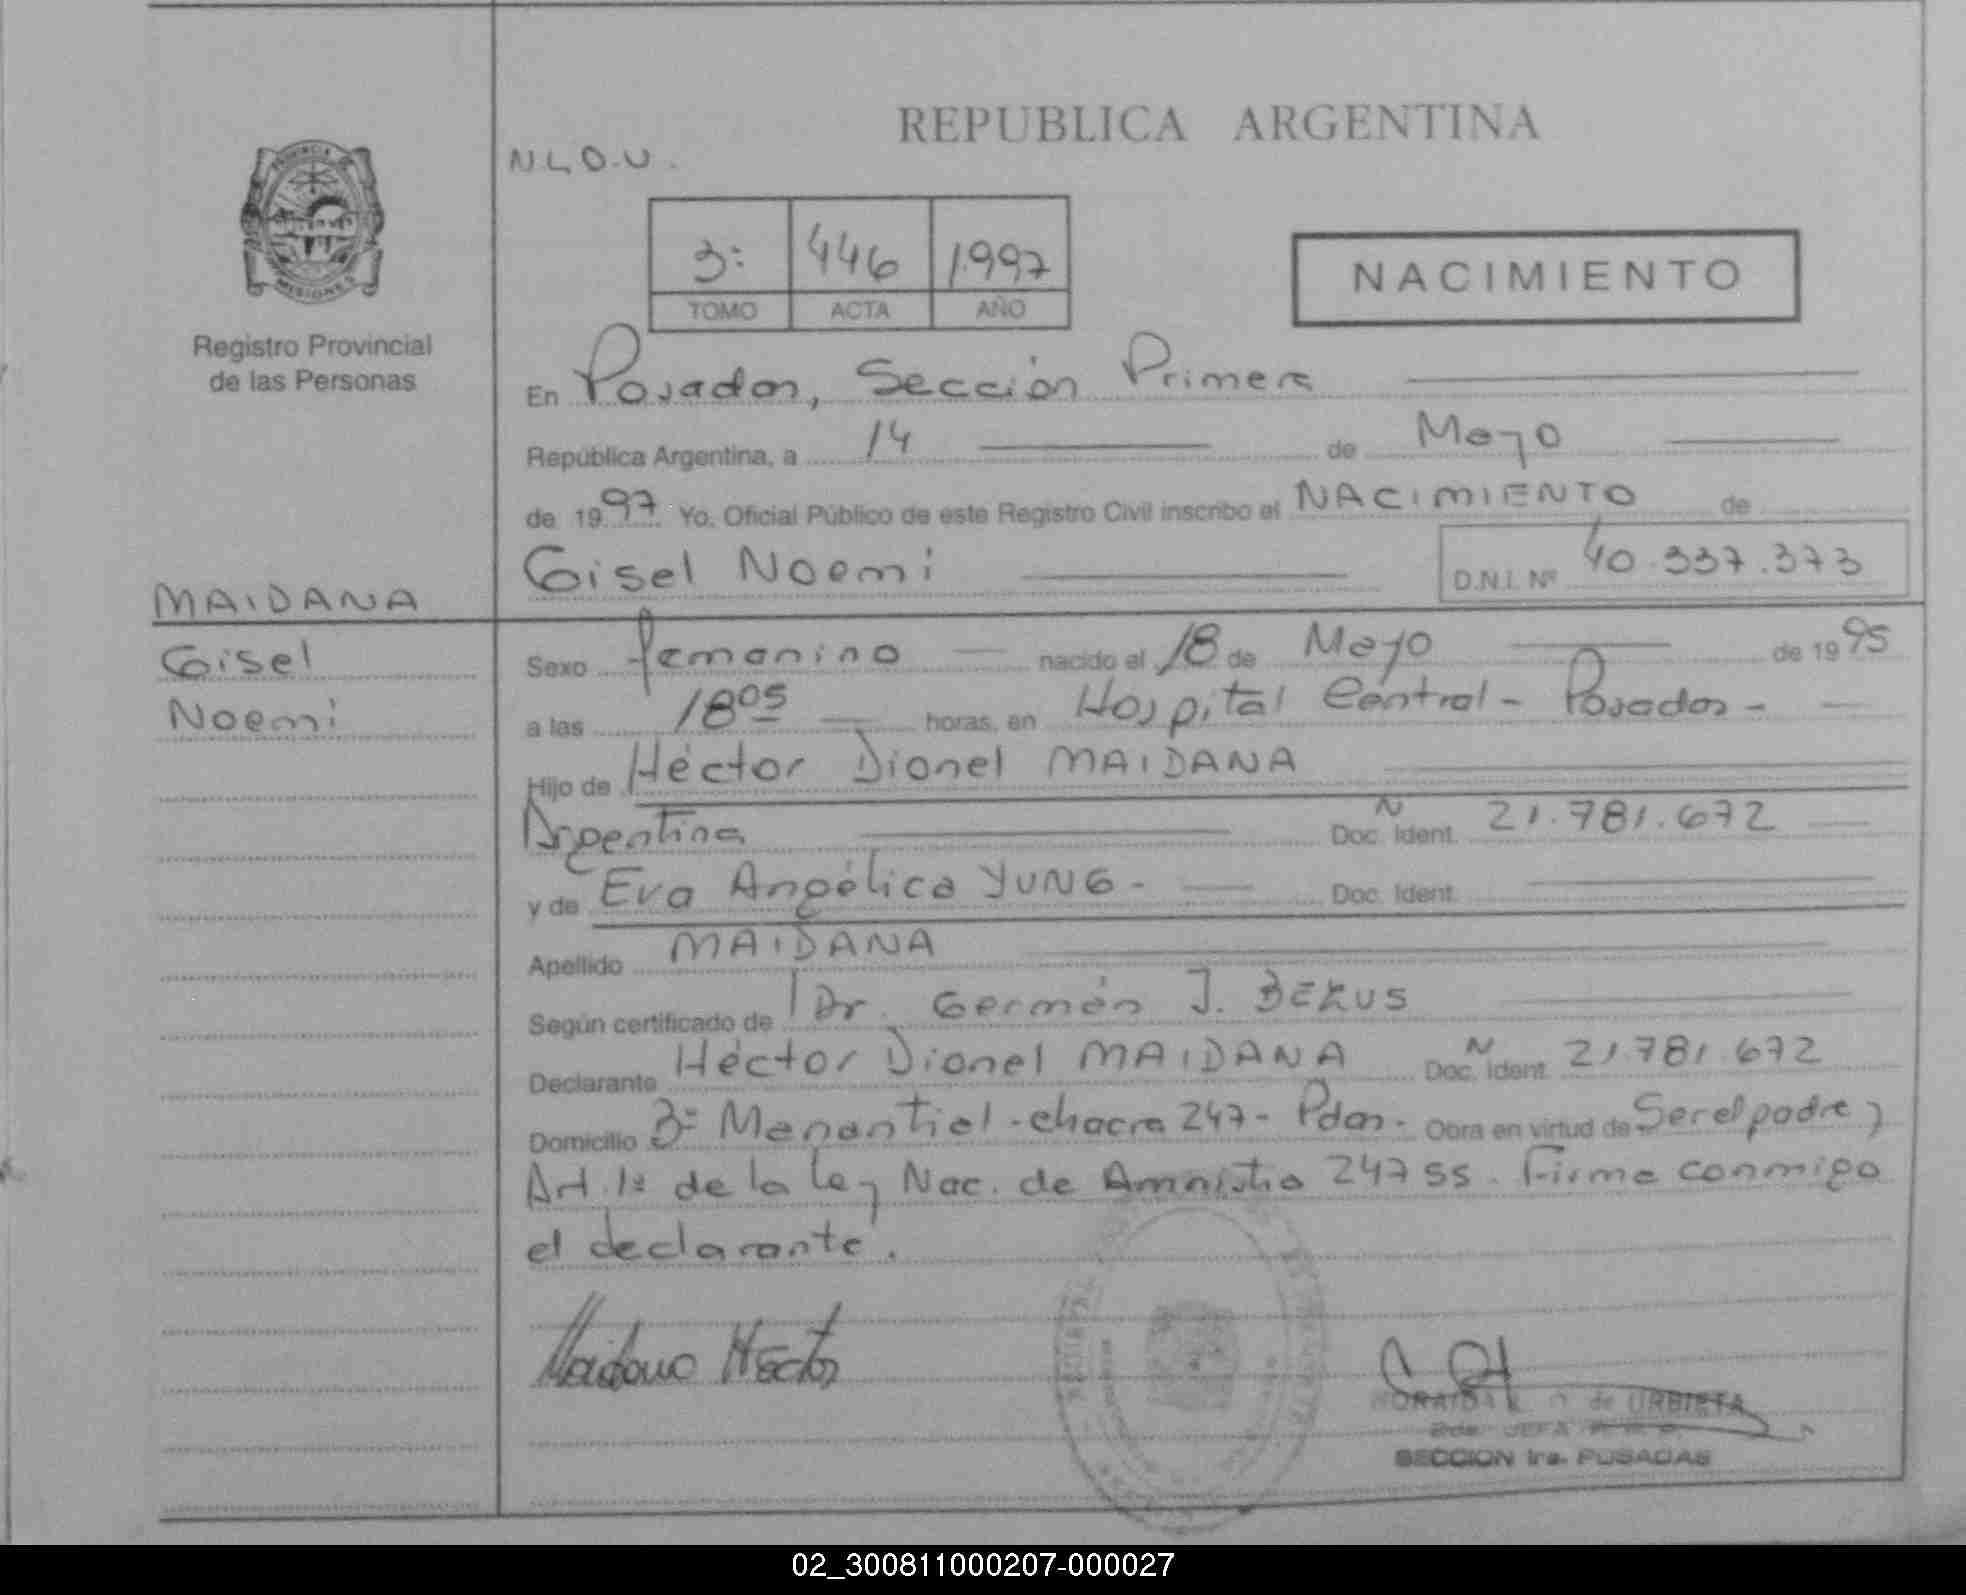 REPUBLICA ARGENTINA
PROVINCIA DE
MISIONES
Registro Provincial
de las Personas
N.L.O.U.
3: 446 1997
TOMO ACTA AÑO
NACIMIENTO
En Posadas, Sección Primera
República Argentina, a 14 de Mayo
de 1997. Yo, Oficial Público de este Registro Civil inscribo el NACIMIENTO de
Gisel Noemi D.N.I. Nº 40.337.373
MAIDANA
Gisel
Noemi
Sexo femenino nacido el 18 de Mayo de 1995
a las 18 05 horas, en Hospital Central - Posadas -
Hijo de Héctor Dionel MAIDANA
Argentina N Doc. Ident. 21.781.672
y de Eva Angélica YUNG - Doc. Ident.
Apellido MAIDANA
Según certificado de Dr. Germán J. BEKUS
Declarante Héctor Dionel MAIDANA N Doc. Ident. 21.781.672
Domicilio Bº Manantial - chacra 247 - Pdas. Obra en virtud de Ser el padre y
Art. 1º de la Ley Nac. de Amnistia 24755. Firma conmigo
el declarante.
Maidana Héctor
de URBIETA
2da. JEFA
SECCION 1ra. POSADAS
02_300811000207-000027